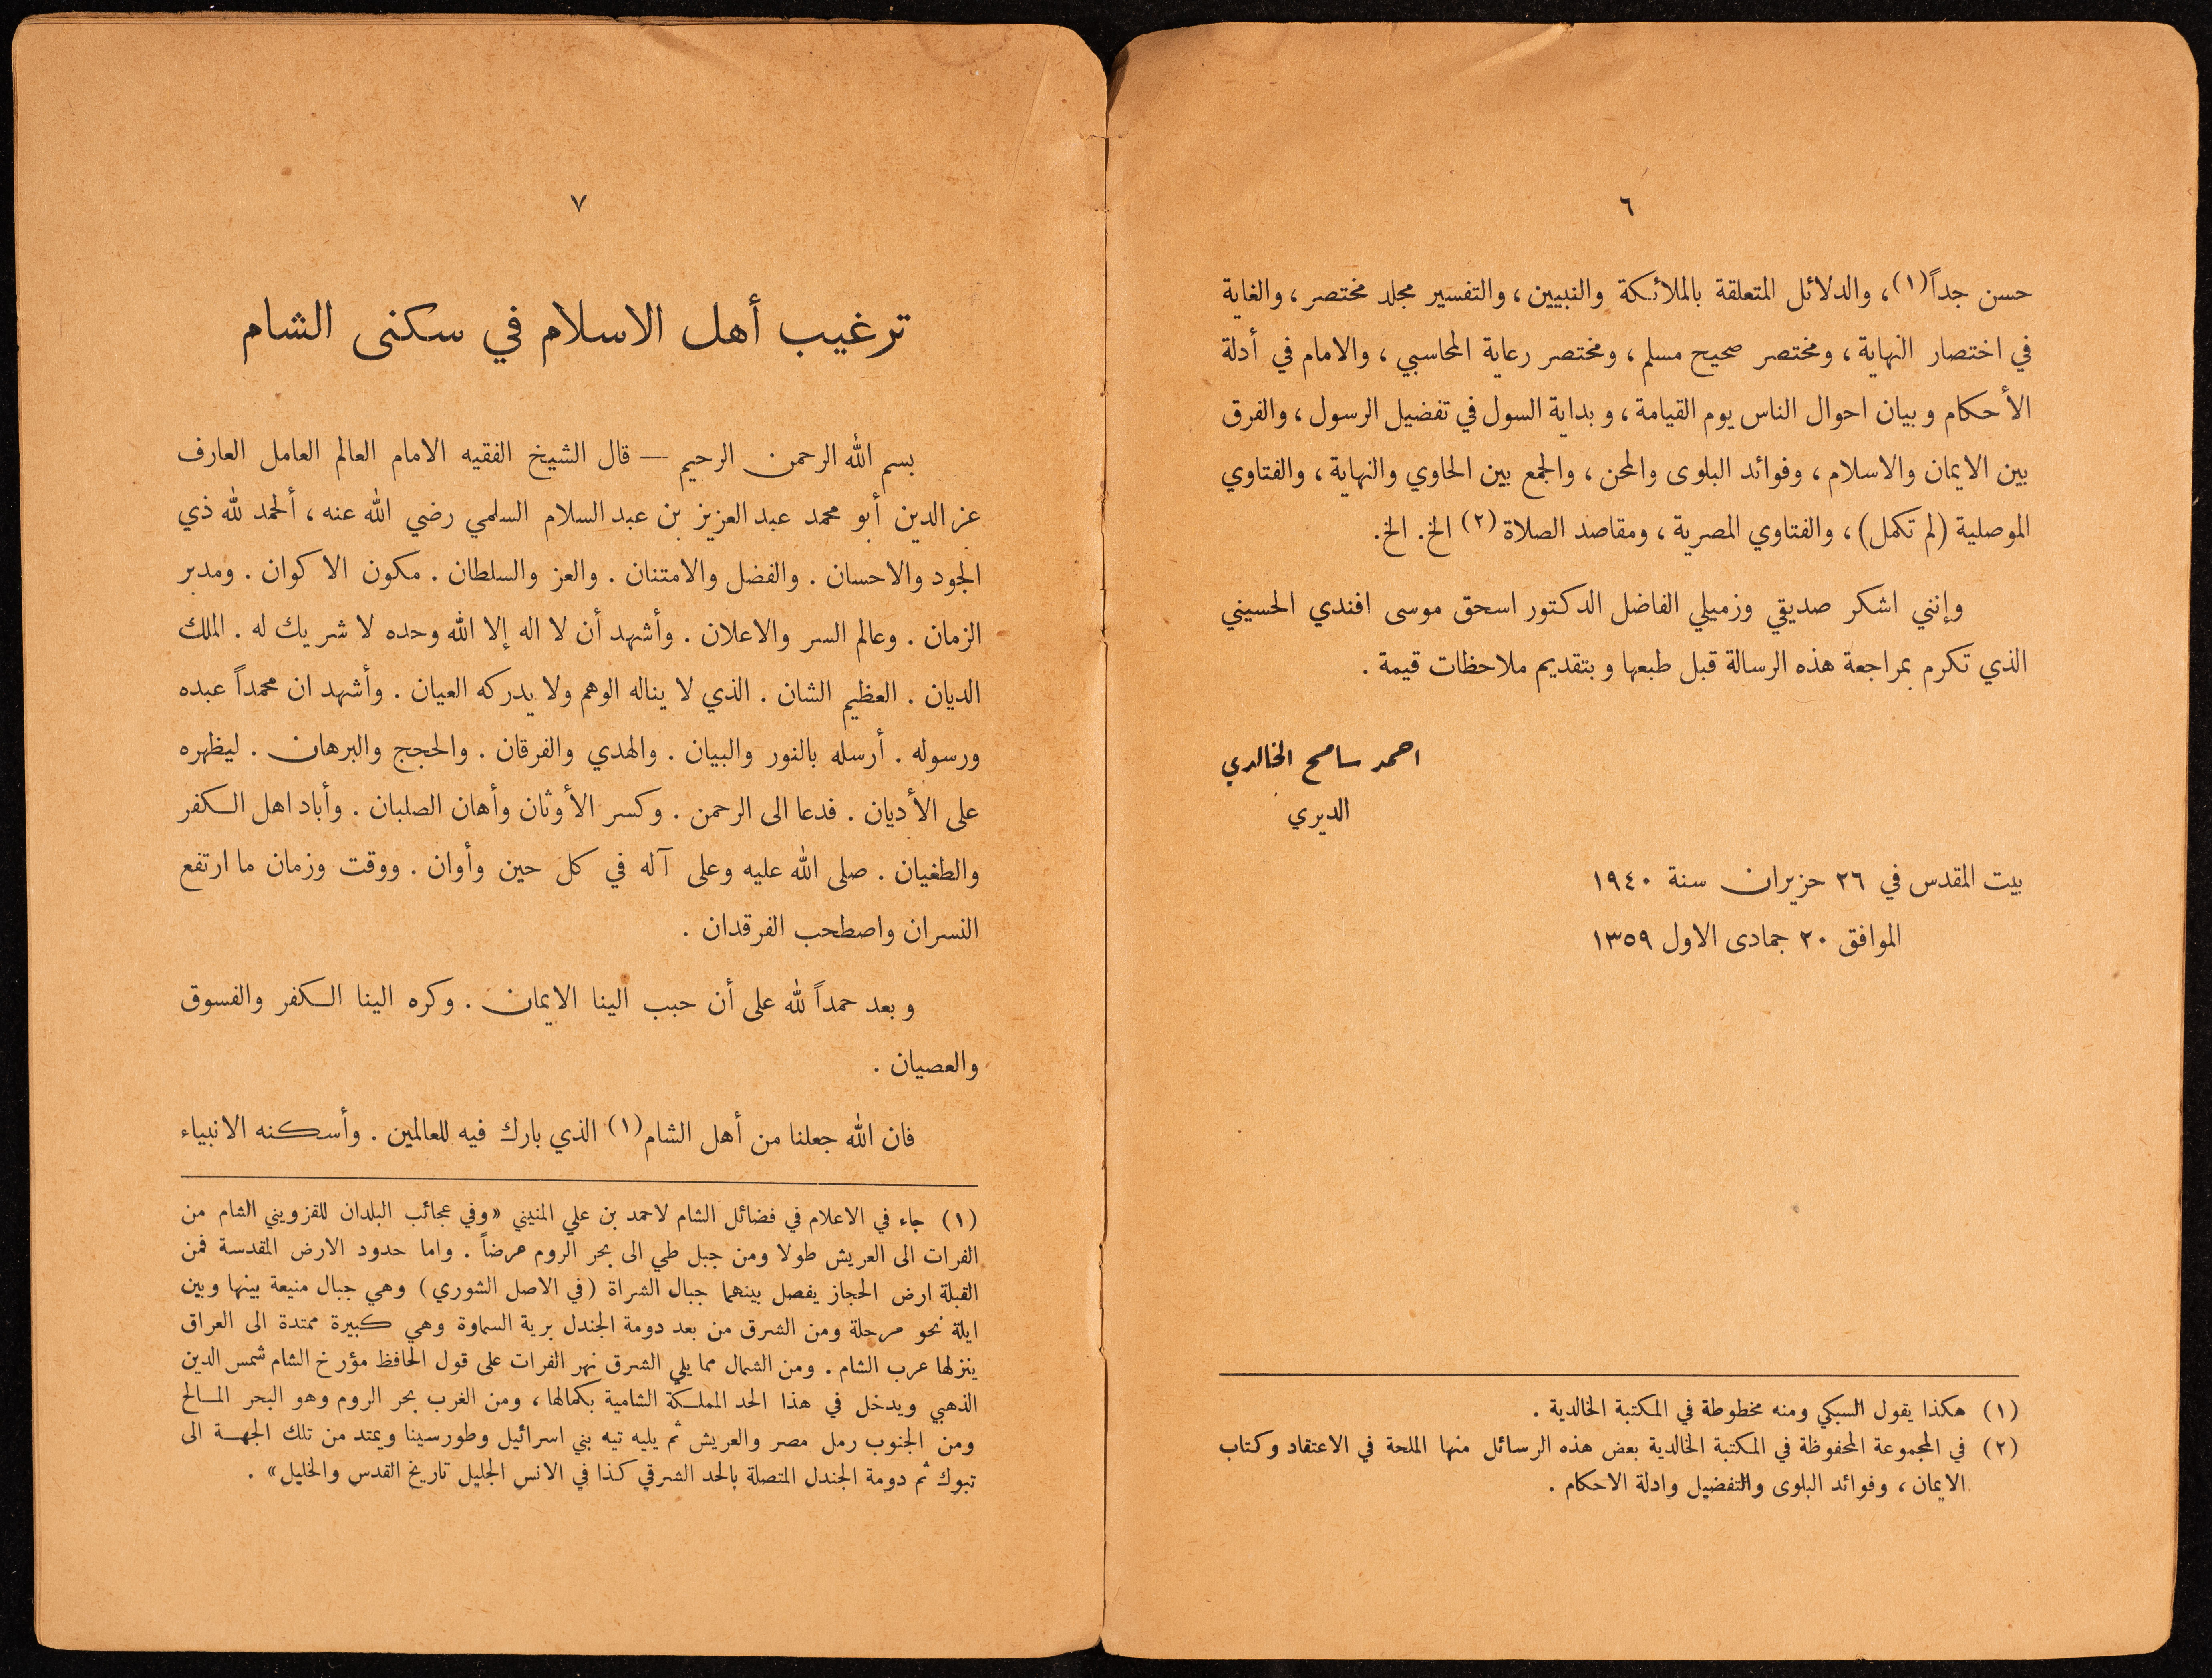 ٦
حسن جداً(١)، والدلائل المتعلقة بالملائكة والنبيين، والتفسير مجلد مختصر، والغاية
في اختصار النهاية، ومختصر صحيح مسلم، ومختصر رعاية المحاسبي، والامام في أدلة
الأحكام وبيان احوال الناس يوم القيامة، وبداية السول في تفضيل الرسول، والفرق
بين الايمان والاسلام، وفوائد البلوى والمحن، والجمع بين الحاوي والنهاية، والفتاوي
الموصلية (لم تكمل)، والفتاوي المصرية، ومقاصد الصلاة(٢) الخ. الخ.
وإنني اشكر صديقي وزميلي الفاضل الدكتور اسحق موسى افندي الحسيني
الذي تكرم بمراجعة هذه الرسالة قبل طبعها وبتقديم ملاحظات قيمة.
احمد سامح الخالدي
الديري
بيت المقدس في ٢٦ حزيران سنة ١٩٤٠
الموافق ٢٠ جمادى الاول ١٣٥٩
(١) هكذا يقول السبكي ومنه مخطوطة في المكتبة الخالدية.
(٢) في المجموعة المحفوظة في المكتبة الخالدية بعض هذه الرسائل منها الملحة في الاعتقاد وكتاب
الايمان، وفوائد البلوى والتفضيل وادلة الاحكام.
٧
ترغيب أهل الاسلام في سكنى الشام
بسم الله الرحمن الرحيم — قال الشيخ الفقيه الامام العالم العامل العارف
عز الدين أبو محمد عبد العزيز بن عبد السلام السلمي رضي الله عنه، ألحمد لله ذي
الجود والاحسان. والفضل والامتنان. والعز والسلطان. مكون الاكوان. ومدبر
الزمان. وعالم السر والاعلان. وأشهد أن لا اله إلا الله وحده لا شريك له. الملك
الديان. العظيم الشان. الذي لا يناله الوهم ولا يدركه العيان. وأشهد ان محمداً عبده
ورسوله. أرسله بالنور والبيان. والهدي والفرقان. والحجج والبرهان. ليظهره
على الأديان. فدعا الى الرحمن. وكسر الأوثان وأهان الصلبان. وأباد اهل الكفر
والطغيان. صلى الله عليه وعلى آله في كل حين وأوان. ووقت وزمان ما ارتفع
النسران واصطحب الفرقدان.
وبعد حمداً لله على أن حبب الينا الايمان. وكره الينا الكفر والفسوق
والعصيان.
فان الله جعلنا من أهل الشام(١) الذي بارك فيه للعالمين. وأسكنه الانبياء
(١) جاء في الاعلام في فضائل الشام لاحمد بن علي المنيني «وفي عجائب البلدان للقزويني الشام من
الفرات الى العريش طولا ومن جبل طي الى بحر الروم عرضاً. واما حدود الارض المقدسة فمن
القبلة ارض الحجاز يفصل بينهما جبال الشراة (في الاصل الشوري) وهي جبال منيعة بينها وبين
ايلة نحو مرحلة ومن الشرق من بعد دومة الجندل برية السماوة وهي كبيرة ممتدة الى العراق
ينزلها عرب الشام. ومن الشمال مما يلي الشرق نهر الفرات على قول الحافظ مؤرخ الشام شمس الدين
الذهبي ويدخل في هذا الحد المملكة الشامية بكمالها، ومن الغرب بحر الروم وهو البحر المالح
ومن الجنوب رمل مصر والعريش ثم يليه تيه بني اسرائيل وطورسينا ويمتد من تلك الجهة الى
تبوك ثم دومة الجندل المتصلة بالحد الشرقي كذا في الانس الجليل تاريخ القدس والخليل».